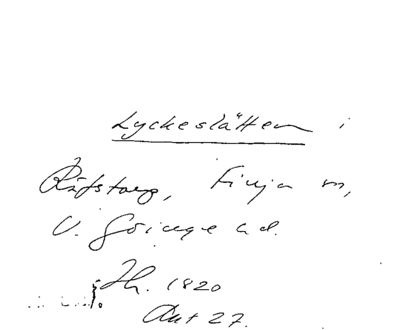 Lyckeslätten i
Röfstorp, Finja sn,
V. Göinge hd.
Jh. 1820
Akt 27.